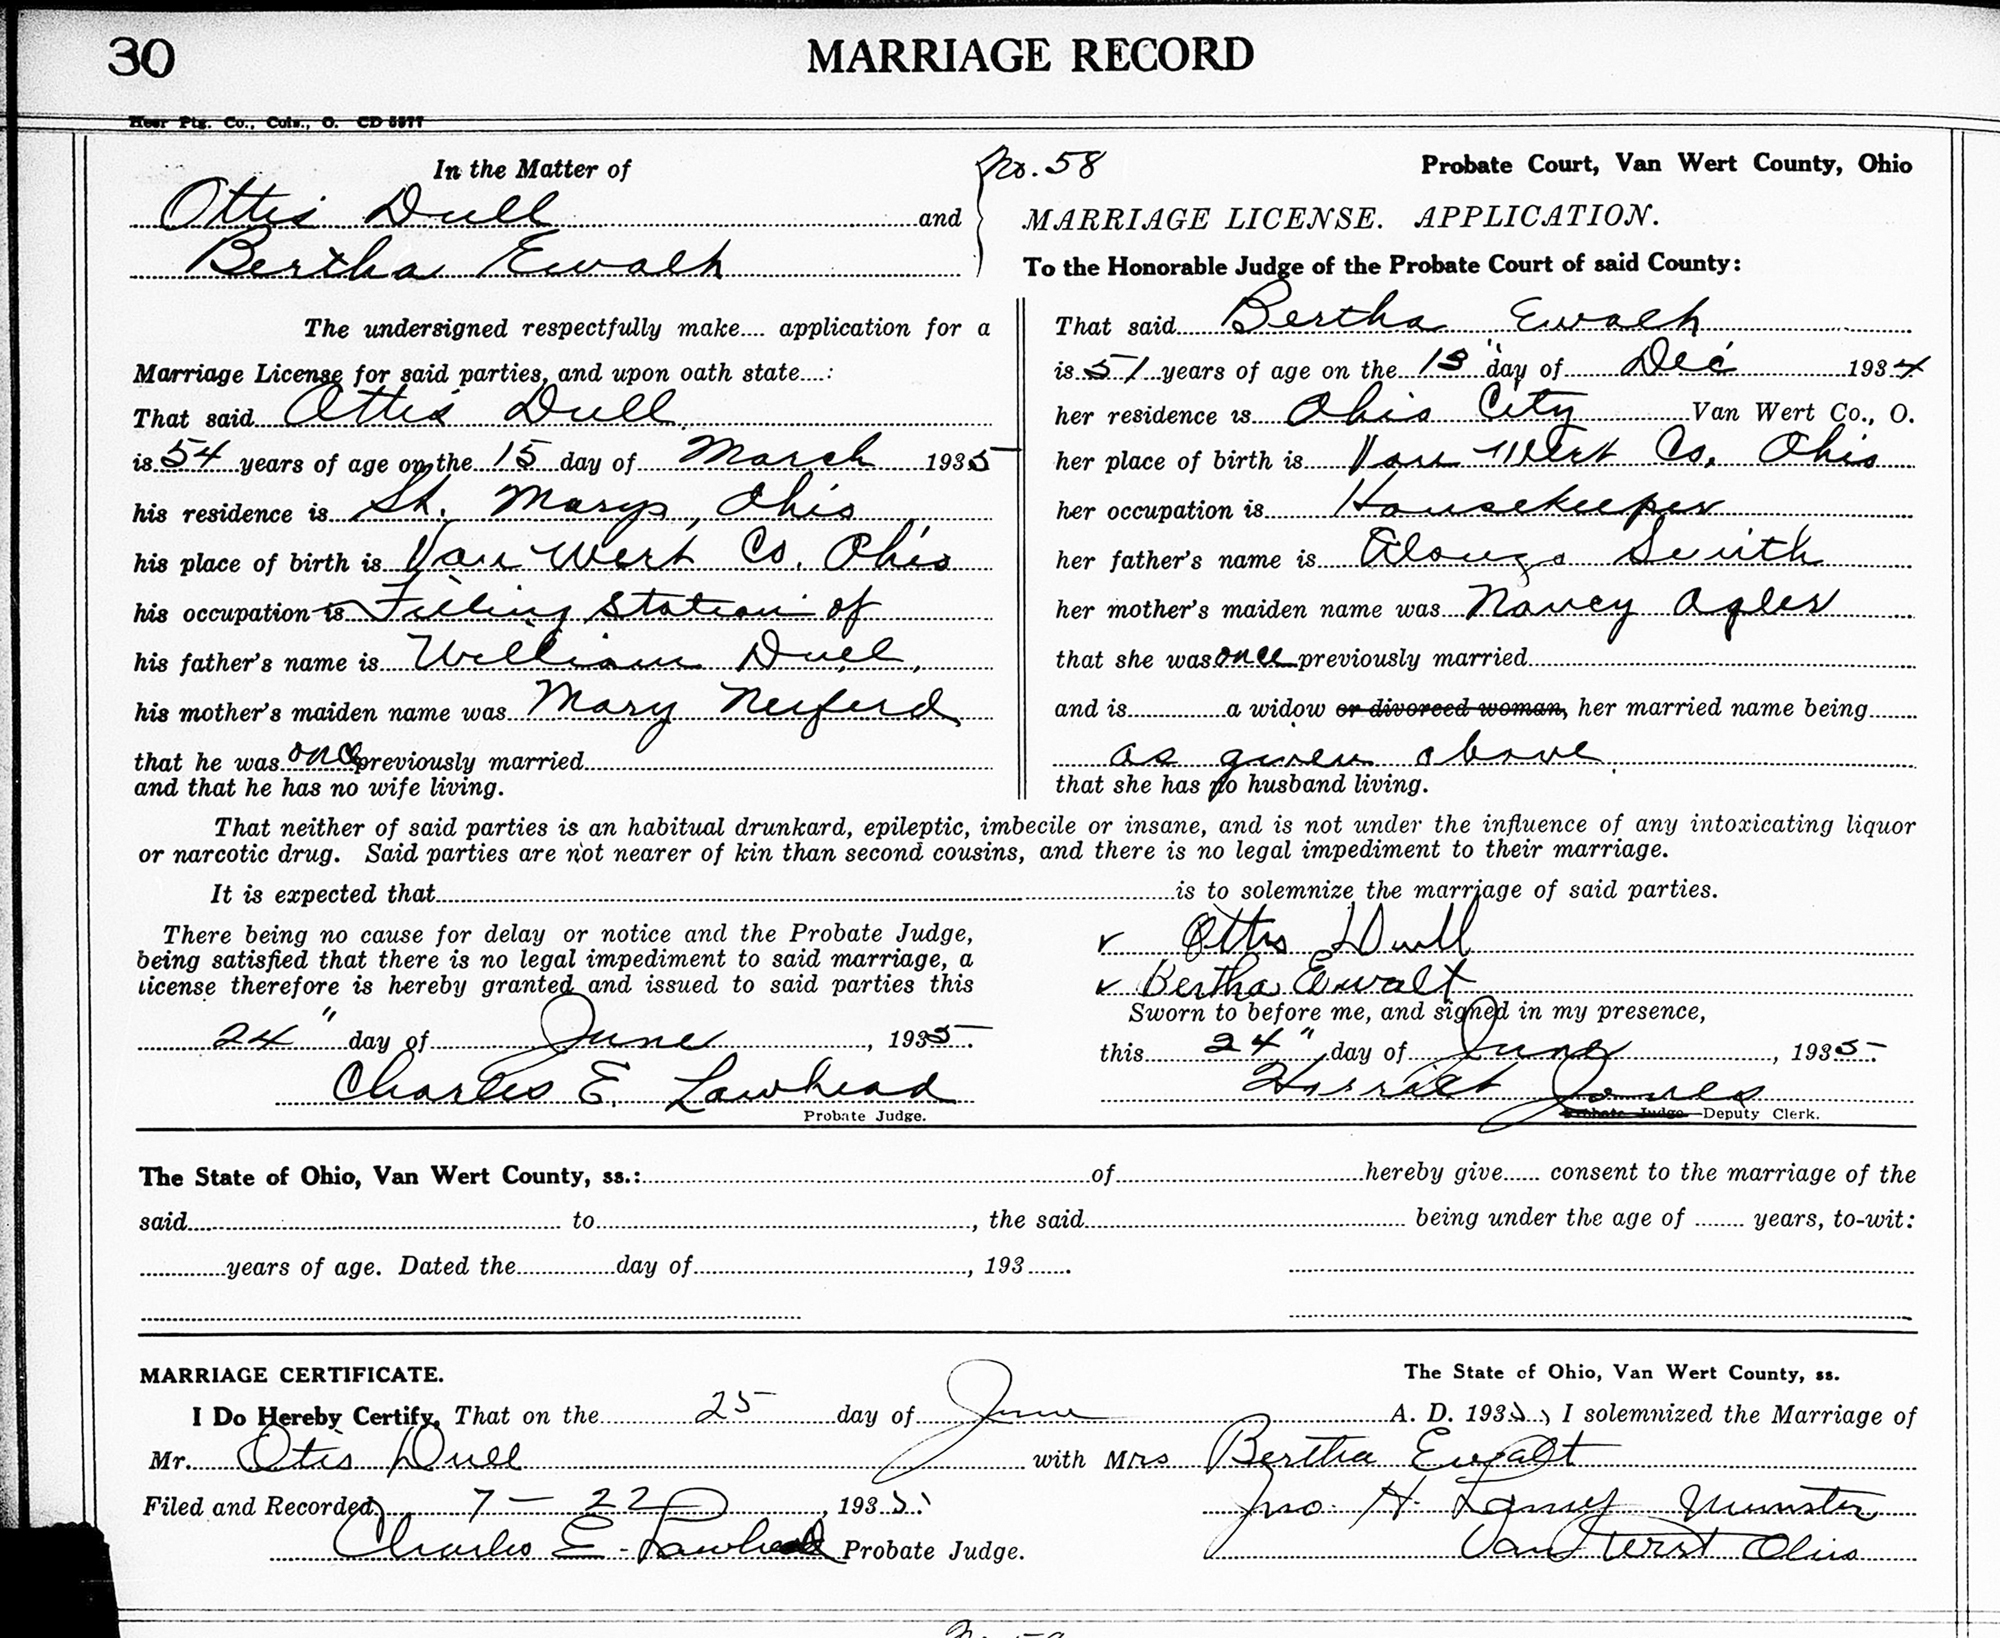 30
MARRIAGE RECORD
Heer Ptg. Co., Cols., O. CD 5577
In the Matter of
Ottis Dull and
Bertha Ewalt
No. 58
Probate Court, Van Wert County, Ohio
MARRIAGE LICENSE. APPLICATION.
To the Honorable Judge of the Probate Court of said County:
The undersigned respectfully make.... application for a
Marriage License for said parties, and upon oath state....:
That said Ottis Dull
is 54 years of age on the 15 day of March 1935
his residence is St. Marys, Ohio
his place of birth is Van Wert Co. Ohio
his occupation is Filling Station of
his father's name is William Dull,
his mother's maiden name was Mary Neiferd
that he was once previously married
and that he has no wife living.
That said Bertha Ewalt
is 51 years of age on the 13" day of Dec 1934
her residence is Ohio City Van Wert Co., O.
her place of birth is Van Wert Co. Ohio
her occupation is Housekeeper
her father's name is Alonzo Smith
her mother's maiden name was Nancy Agler
that she was once previously married
and is a widow or divorced woman, her married name being
as given above
that she has no husband living.
That neither of said parties is an habitual drunkard, epileptic, imbecile or insane, and is not under the influence of any intoxicating liquor
or narcotic drug. Said parties are not nearer of kin than second cousins, and there is no legal impediment to their marriage.
It is expected that is to solemnize the marriage of said parties.
There being no cause for delay or notice and the Probate Judge,
being satisfied that there is no legal impediment to said marriage, a
license therefore is hereby granted and issued to said parties this
24" day of June, 1935.
Charles E. Lawhead
Probate Judge.
Ottis Dull
Bertha Ewalt
Sworn to before me, and signed in my presence,
this 24" day of June, 1935.
Harriet Jones
Probate Judge Deputy Clerk.
The State of Ohio, Van Wert County, ss.: of hereby give...... consent to the marriage of the
said to, the said being under the age of ........ years, to-wit:
years of age. Dated the day of, 193.......
MARRIAGE CERTIFICATE.
The State of Ohio, Van Wert County, ss.
I Do Hereby Certify, That on the 25 day of June A. D. 1935, I solemnized the Marriage of
Mr. Otis Dull with Mrs Bertha Ewalt
Filed and Recorded 7 - 22, 1935.
Jno. H. Minister
Charles E. Lawhead Probate Judge.
Van Wert Ohio